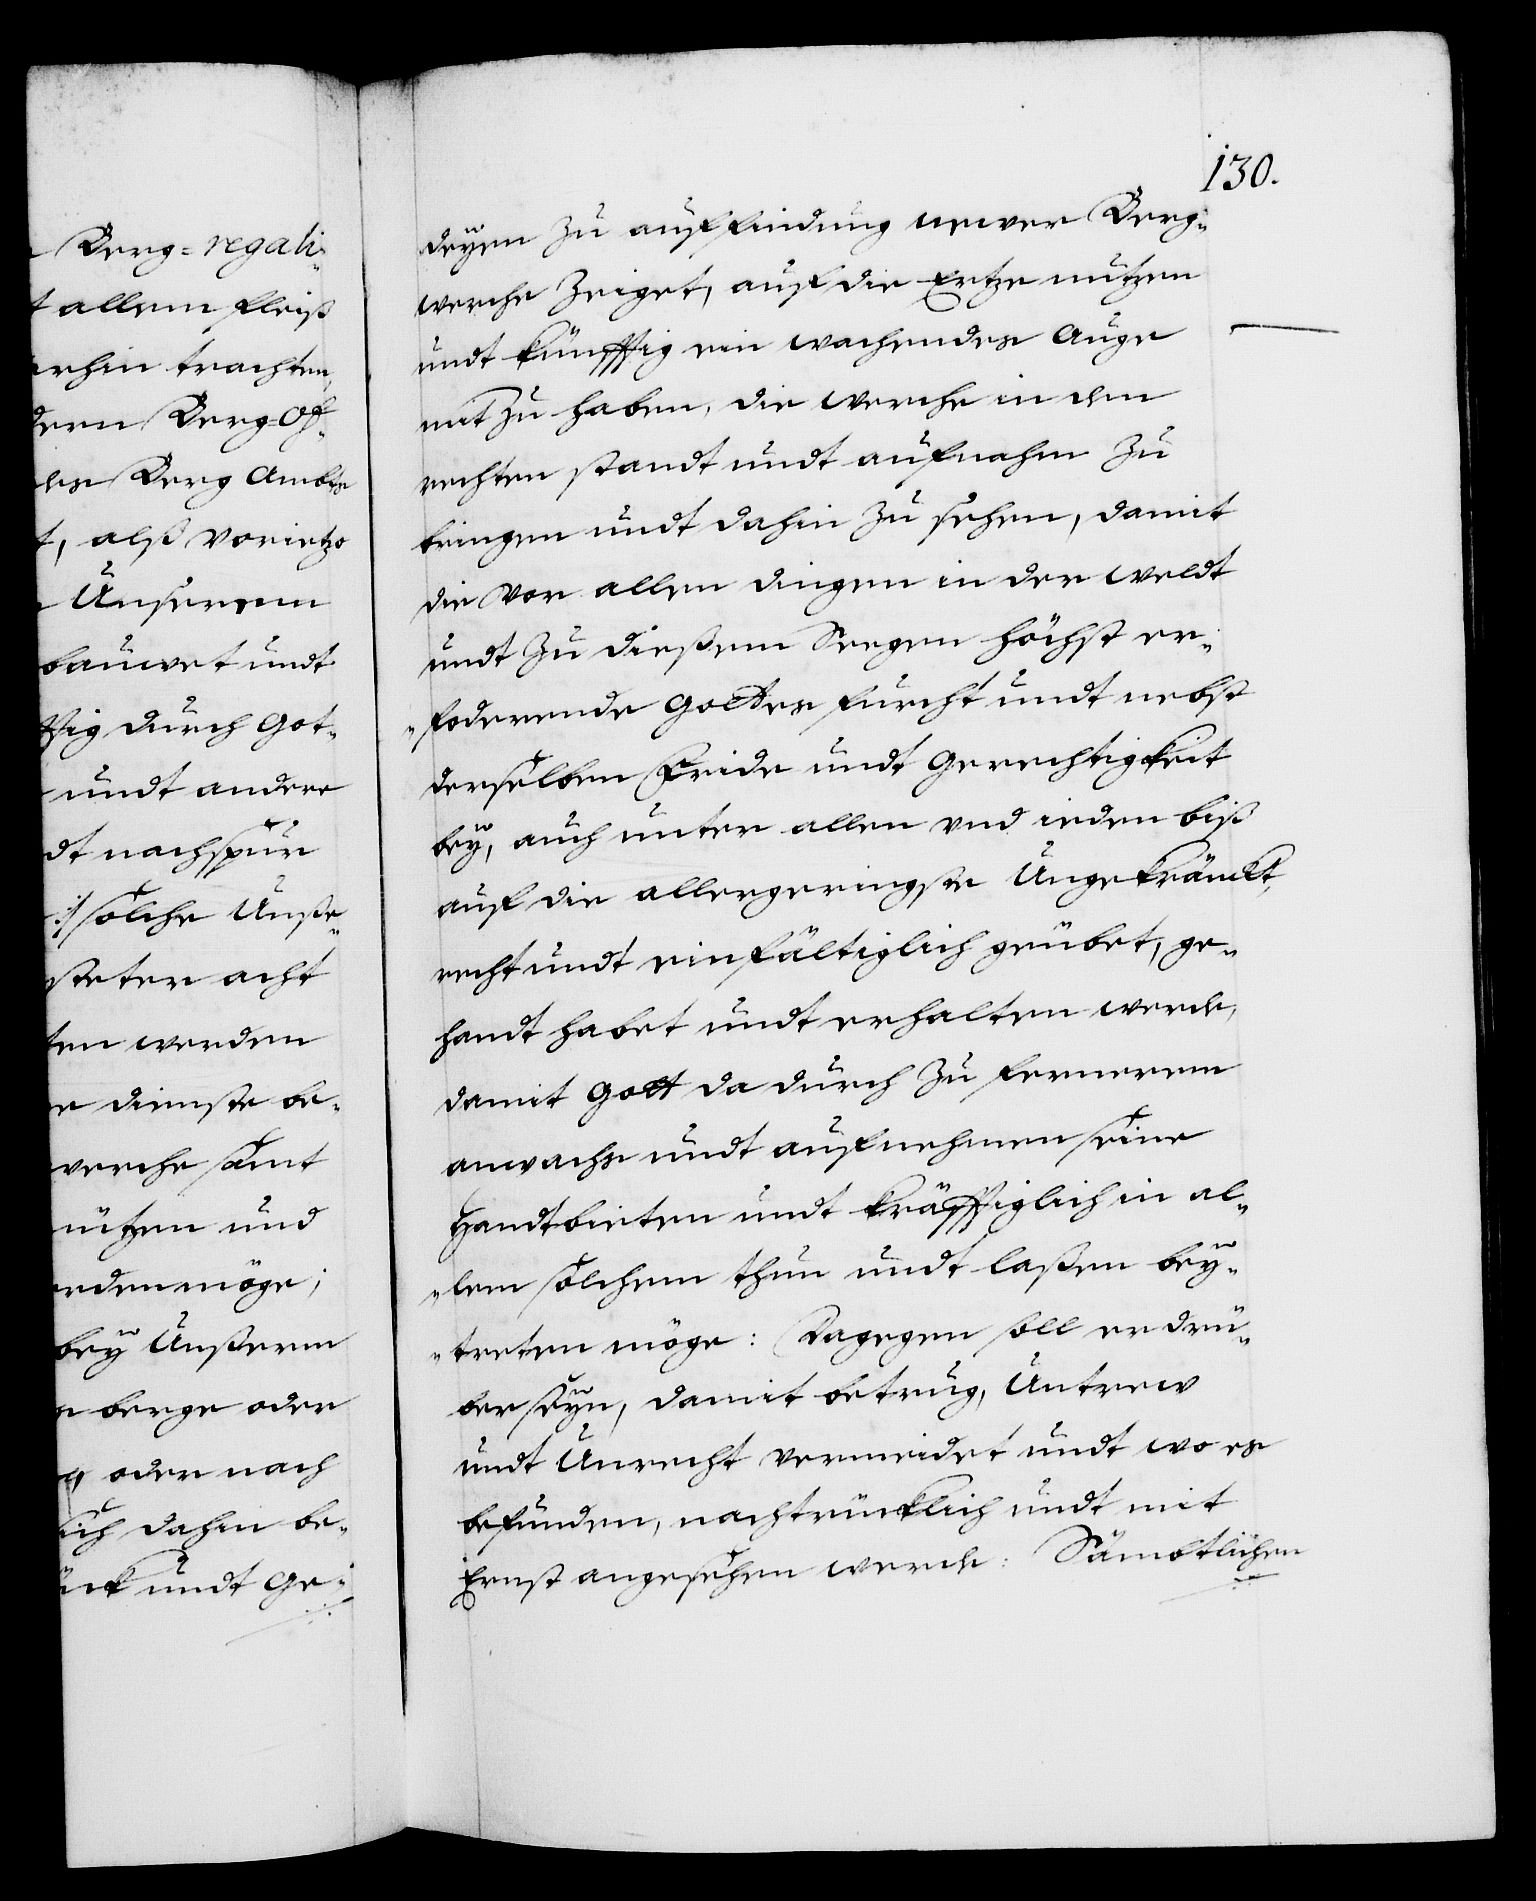 130.
n Berg-regali-
t allem fleiß
erhin trachten,
dern Berg-Of-
des Berg Ambts
t, alß vorietzo
n Unserem
bauwet undt
fftig durch Got-
undt andere
dt nachspür
:/ solche Unße-
steter acht
ten werden
e dienste be-
wercke sämt
nützen und
erden möge;
bey Unßerem
n berge oder
oder nach
sich dahin be-
ück undt ge-
deyen zu auffindung newer Berg-
wercke zeiget, auf die Ertze nützen
undt künfftig ein wachendes Auge
mit zu haben, die wercke in den
rechten standt undt aufnahm zu
bringen undt dahin zu sehen, damit
die vor allen dingen in der weldt
undt zu dießem Seegen höchst er-
foderende Gottes furcht undt nebst
derselben Fride undt gerechtigkeit
bey, auch unter allen vnd ieden biß
auf die allergeringste Ungekränckt,
recht undt einfältiglich geübet, ge-
handt habet undt erhalten werde,
damit Gott da durch zu fernerem
anwachs undt aufnehmen seine
Handt bieten undt kräfftiglich in al-
lem solchem thun undt laßen bey-
treten möge: Dagegen soll er drü-
ber seyn, damit betrug, Untrew
undt Unrecht vermeidet undt wo es
befunden, nachtrücklich undt mit
Ernst angesehen werde: Sämbtlichen